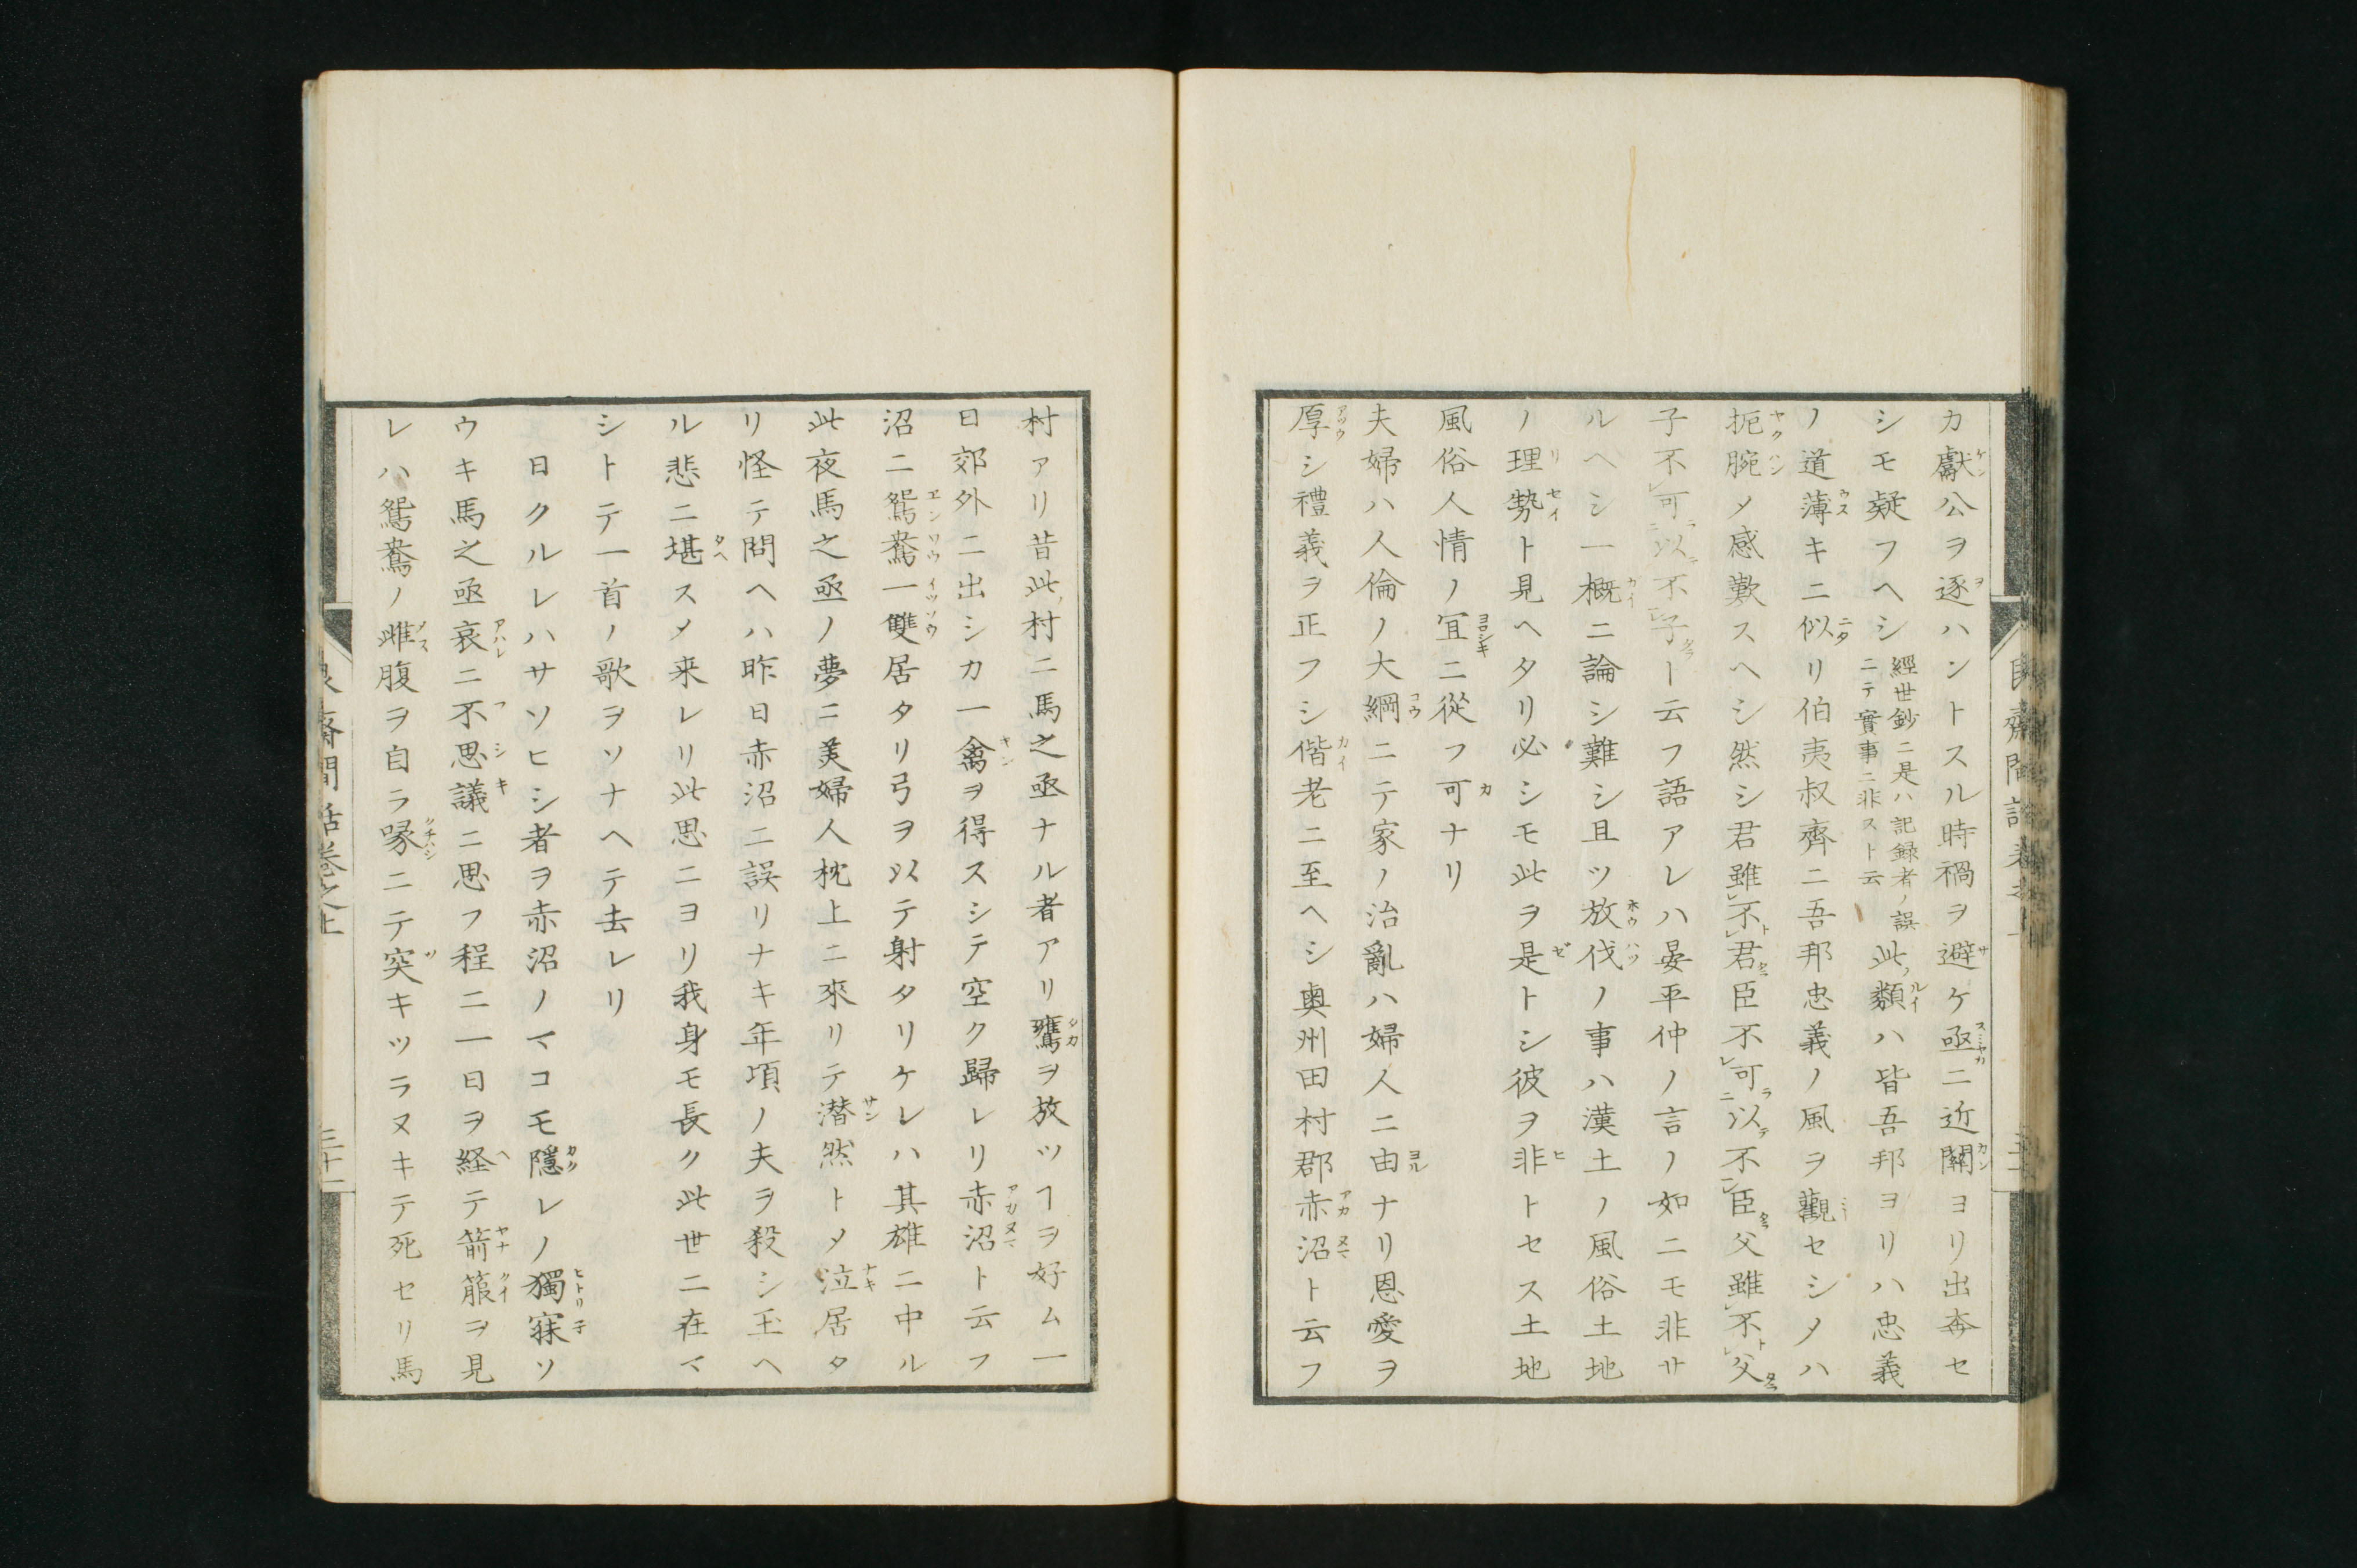 カ獻公ヲ逐ハントスル時禍ヲ避ケ亟ニ近關ヨリ出奔セ
シモ疑フヘシ經世鈔ニ是ハ記録者ノ誤ニテ實事ニ非スト云此ノ類ハ皆吾邦ヨリハ忠義
ノ道薄キニ似リ伯夷叔齊ニ吾邦忠義ノ風ヲ觀セシメハ
扼腕メ感歎スヘシ然シ君雖不君臣不可以不臣父雖不父
子不可以不子ト云フ語アレハ晏平仲ノ言ノ如ニモ非サ
ルヘシ一概ニ論シ難シ且ツ放伐ノ事ハ漢土ノ風俗土地
ノ理勢ト見ヘタリ必シモ此ヲ是トシ彼ヲ非トセス土地
風俗人情ノ宜ニ從フ可ナリ
夫婦ハ人倫ノ大綱ニテ家ノ治亂ハ婦人ニ由ナリ恩愛ヲ
厚シ禮義ヲ正フシ偕老ニ至ヘシ奥州田村郡赤沼ト云フ
村アリ昔此ノ村ニ馬之亟ナル者アリ鷹ヲ放ツヿヲ好ム一
日郊外ニ出シカ一禽ヲ得スシテ空ク歸レリ赤沼ト云フ
沼ニ鴛鴦一雙居タリ弓ヲ以テ射タリケレハ其雄ニ中ル
此夜馬之亟ノ夢ニ美婦人枕上ニ來リテ潜然トメ泣居タ
リ怪テ問ヘハ昨日赤沼ニ誤リナキ年項ノ夫ヲ殺シ玉ヘ
ル悲ニ堪スメ来レリ此思ニヨリ我身モ長ク此世ニ在マ
シトテ一首ノ歌ヲソナヘテ去レリ
日クルレハサソヒシ者ヲ赤沼ノマコモ隱レノ獨寐ソ
ウキ馬之亟哀ニ不思議ニ思フ程ニ一日ヲ経テ箭箙ヲ見
レハ鴛鴦ノ雌腹ヲ自ラ喙ニテ突キツラヌキテ死セリ馬
齋間話卷之上
三十一